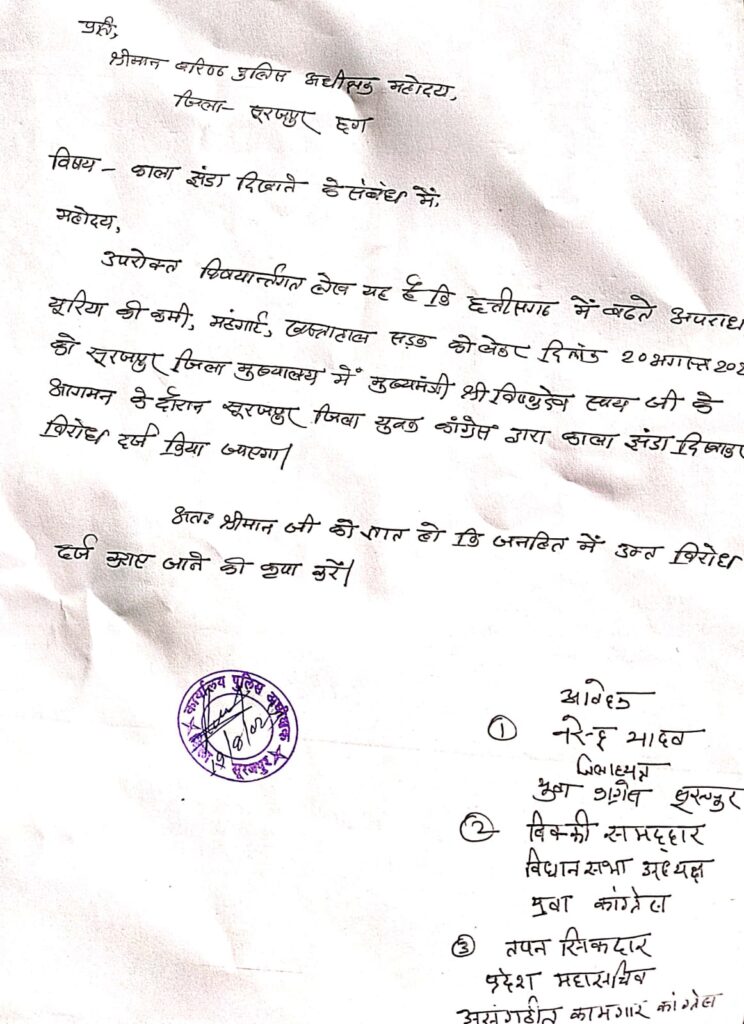 प्रति,
श्रीमान वरिष्ठ पुलिस अधीक्षक महोदय,
जिला- सूरजपुर छग
विषय - काला झंडा दिखाने के संबंध में,
महोदय,
उपरोक्त विषयार्न्तगत लेख यह है कि छत्तीसगढ में बढते अपराध
यूरिया की कमी, मंहगाई, खस्ताहाल सड़क को लेकर दिनांक 20 अगस्त 202
को सूरजपुर जिला मुख्यालय में मुख्यमंत्री श्री विष्णुदेव साय जी के
आगमन के दौरान सूरजपुर जिला युवक कांग्रेस द्वारा काला झंडा दिखाकर
विरोध दर्ज किया जाएगा।
अतः श्रीमान जी को ज्ञात हो कि जनहित में उक्त विरोध
दर्ज कराए जाने की कृपा करें।
कार्यालय पुलिस अधीक्षक
सूरजपुर
आवेदक
① नरेन्द्र यादव
जिलाध्यक्ष
युवा कांग्रेस सूरजपुर
② विक्की समद्दार
विधानसभा अध्यक्ष
युवा कांग्रेस
③ तपन सिकदार
प्रदेश महासचिव
असंगठीत कामगार कांग्रेस